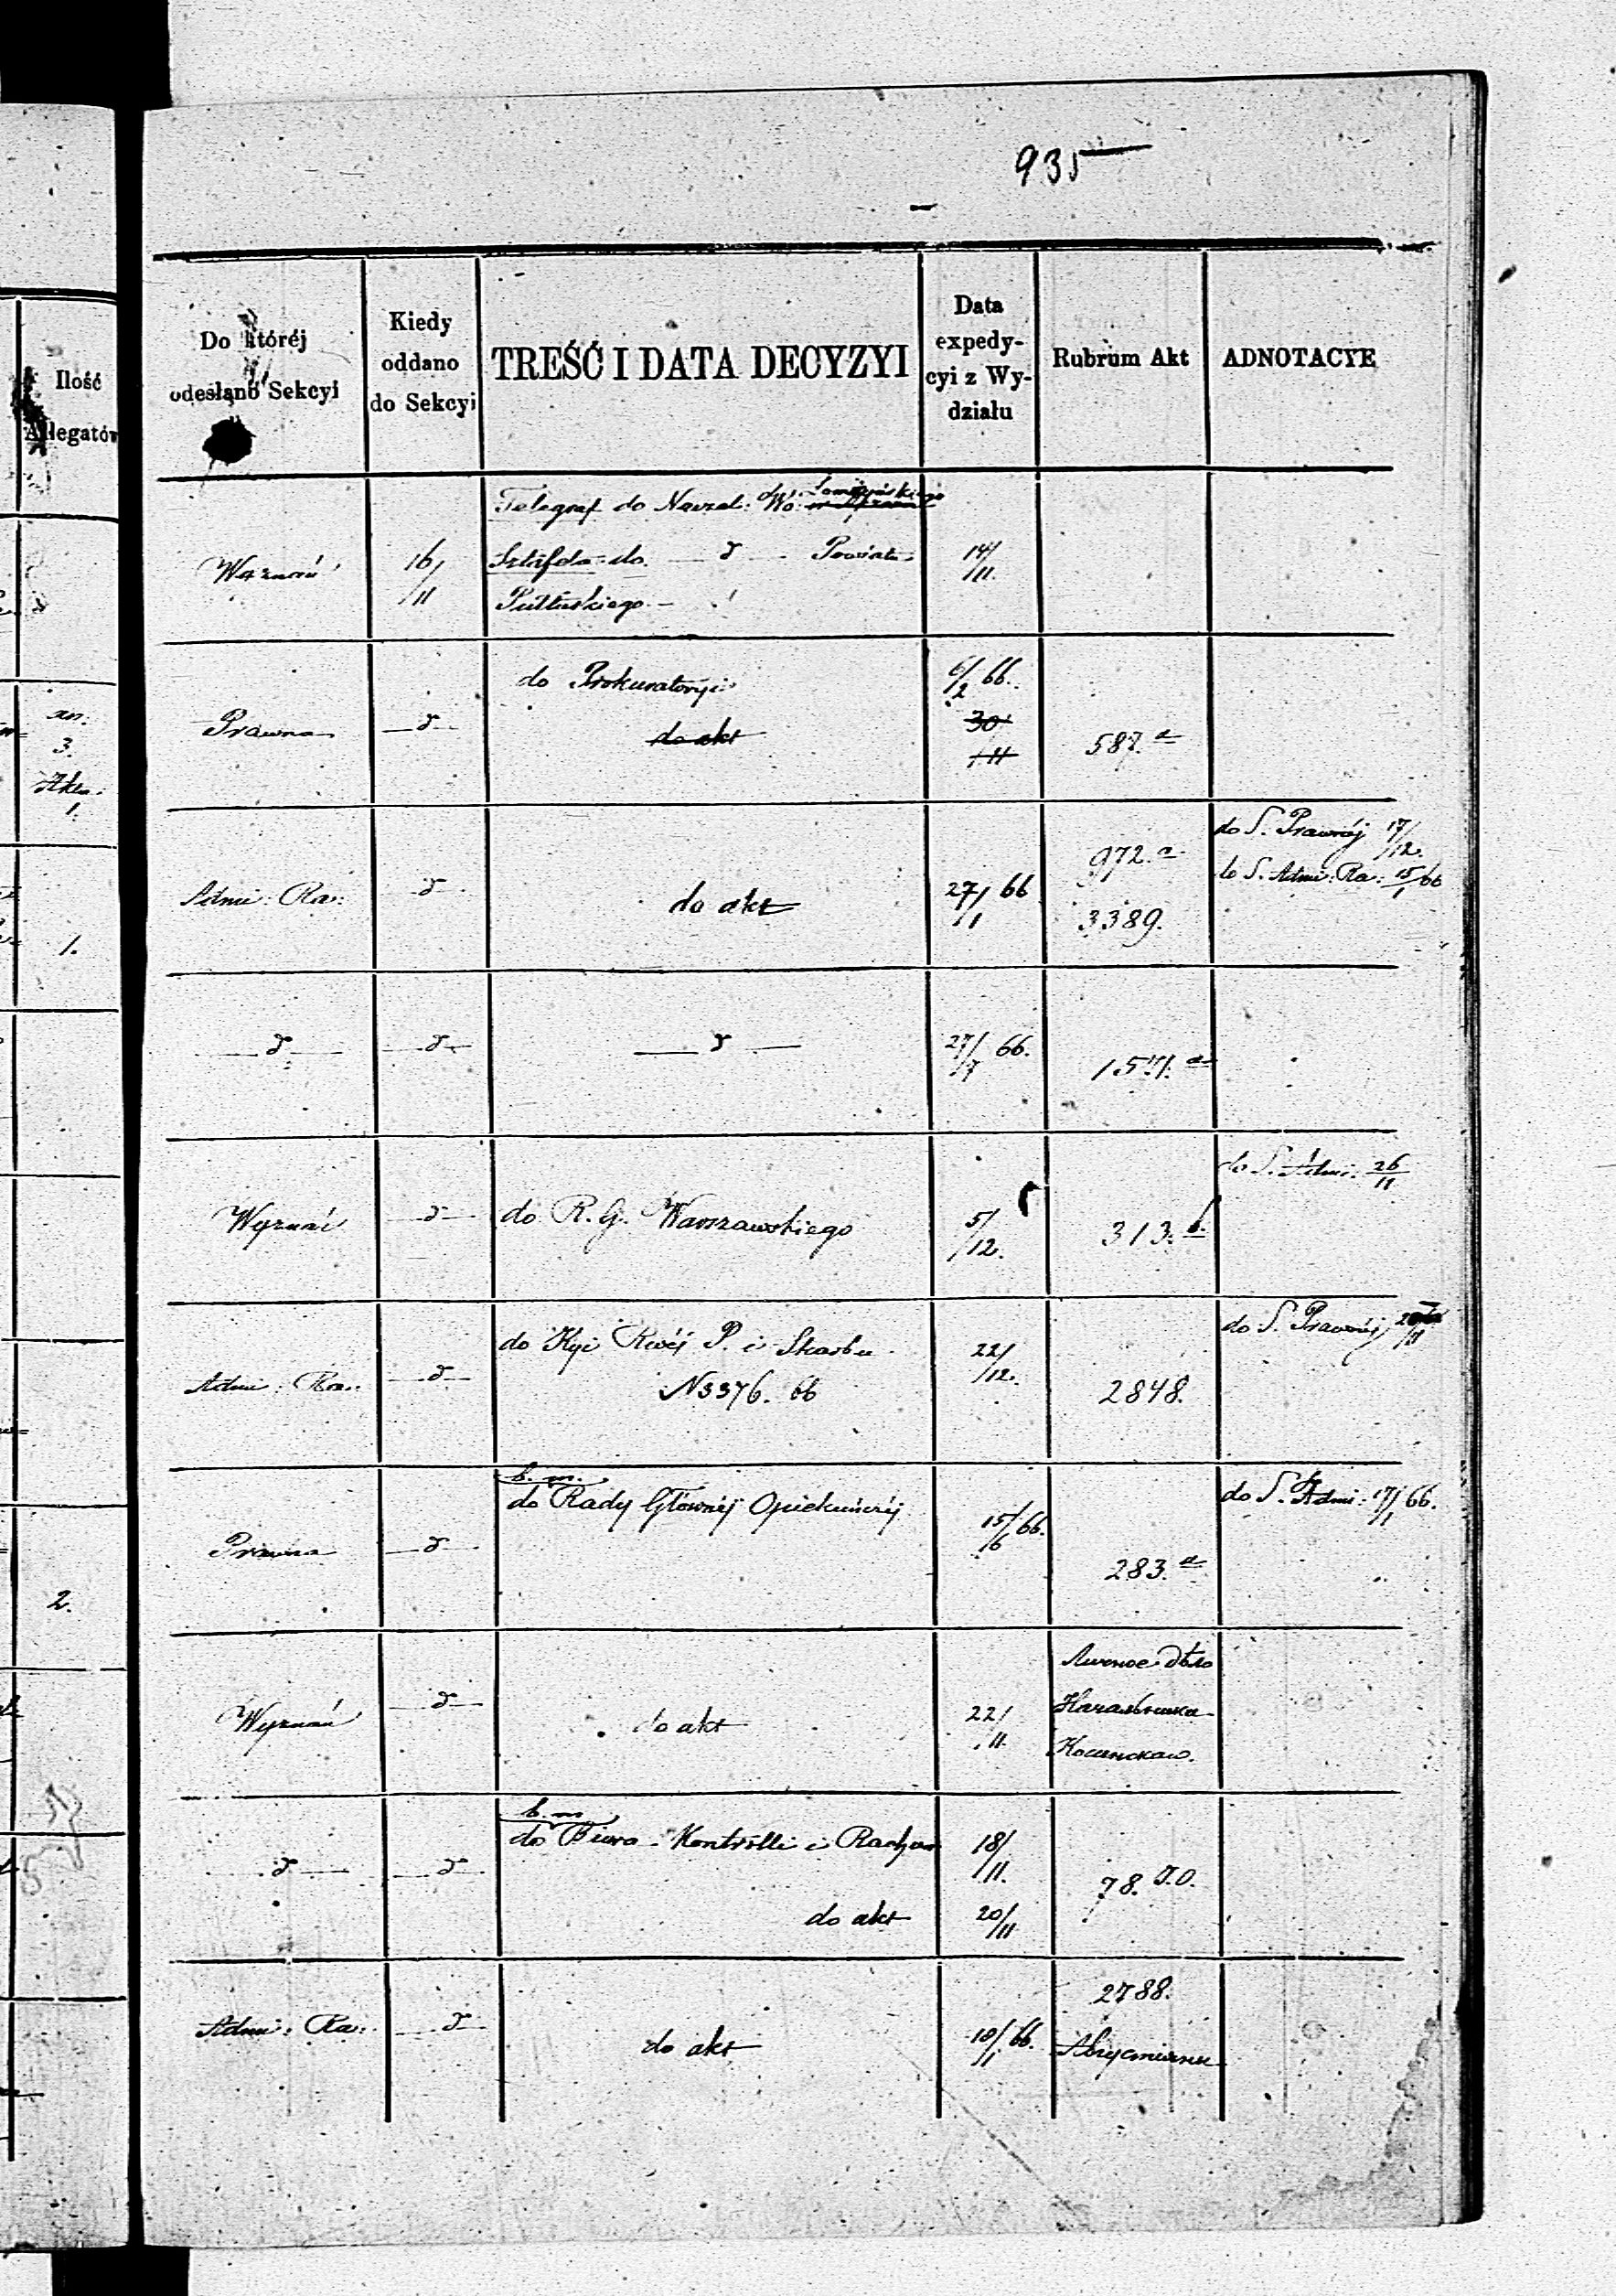 935
Ilość
Allegatów
Do której
odesłano Sekcyi
Kiedy
oddano
do Sekcyi
TREŚĆ I DATA DECYZYI
Data
expedy-
cyi z Wy-
działu
Rubrum Akt
ADNOTACYE
Wyznań
16/11
Telegraf do Naczel: Wo: Łomżyńskiego
Sztafda do — d — Powiatu
Pułtuskiego. —
14/11.
3.
1.
Prawna
— d —
do Prokuratoryi
do akt
6/2 66.
30
11
587. a
1.
Admi: Ra:
d
do akt
27/1 66
972. a
3389.
do S. Prawnéj 17/12.
do S. Admi: Ra: 15/1 66
— d —
— d —
— d —
27/7 66.
157. a
Wyznań
— d —
do R. G. Warszawskiego
5/12.
313. b.
do S. Admi: 26/11
Admi: Ra:
— d —
do Kyi Rwéj P. i Skarbu
N 3376. 66
22/12.
2848.
do S. Prawnéj
2.
Prawna
— d —
b. m.
do Rady Głównéj Opiekuńczéj
15/6 66.
283. a
do S. Admi: 17/1 66.
Wyznań
— d —
do akt
22/11.
Личное дѣло
Начальника
— d —
— d
b. m
do Biura Kontrolli i Rachun
18/11.
do akt
20/11
78.
Admi: Ra:
— d —
do akt
18/1 66.
2788.